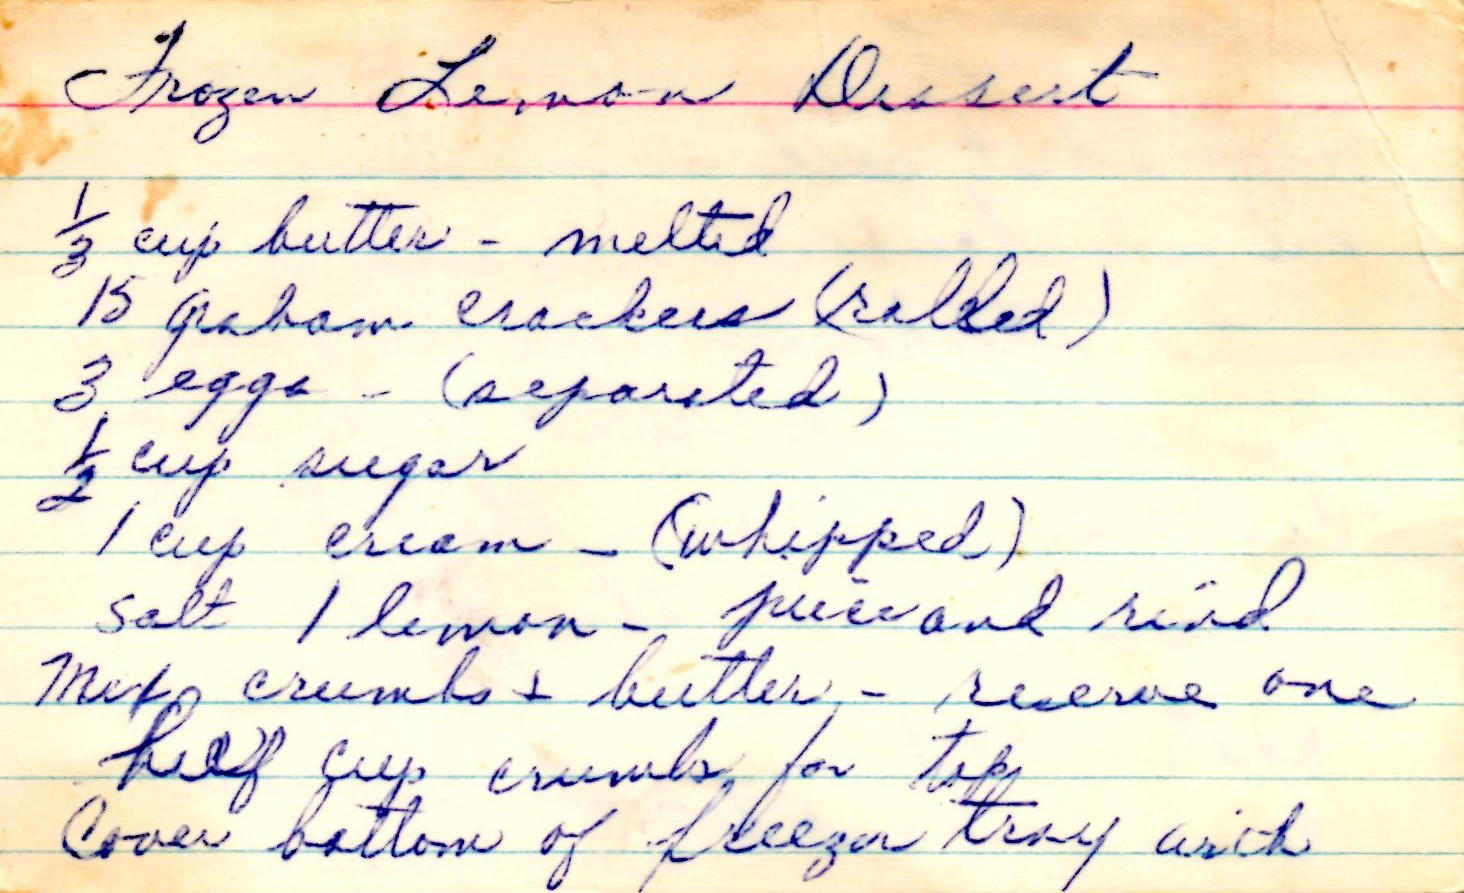 Frozen Lemon Dessert
1/3 cup butter - melted
15 graham crackers (rolled)
3 eggs - (separated)
1/2 cup sugar
1 cup cream - (whipped)
salt 1 lemon - juice and rind
Mix crumbs + butter - reserve one
half cup crumbs for top
Cover bottom of freezer tray with